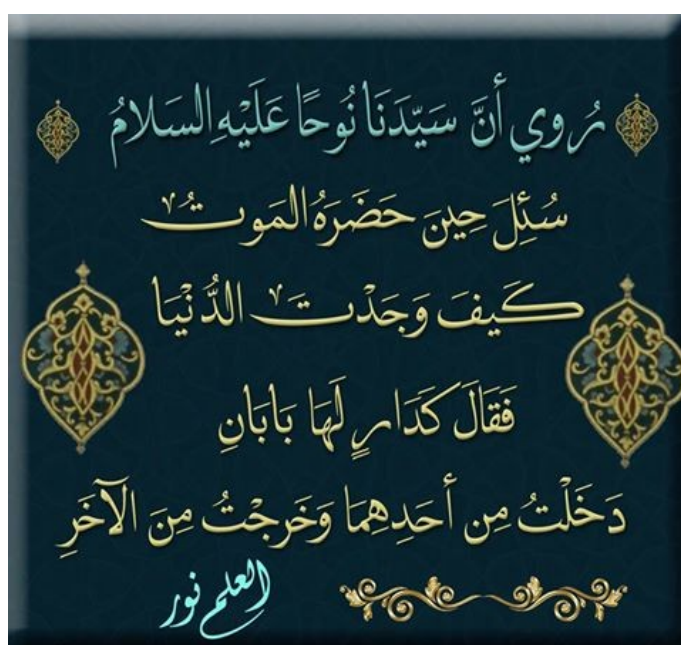 رُوي أنَّ سَيّدَنَا نُوحًا عَلَيْهِ السَلامُ
سُئِلَ حِينَ حَضَرَهُ المَوتُ
كَيفَ وَجَدْتَ الدُّنْيَا
فَقَالَ كَدَارٍ لَهَا بَابَانِ
دَخَلْتُ مِن أحَدِهِمَا وَخَرجْتُ مِنَ الآخَرِ
العلم نور